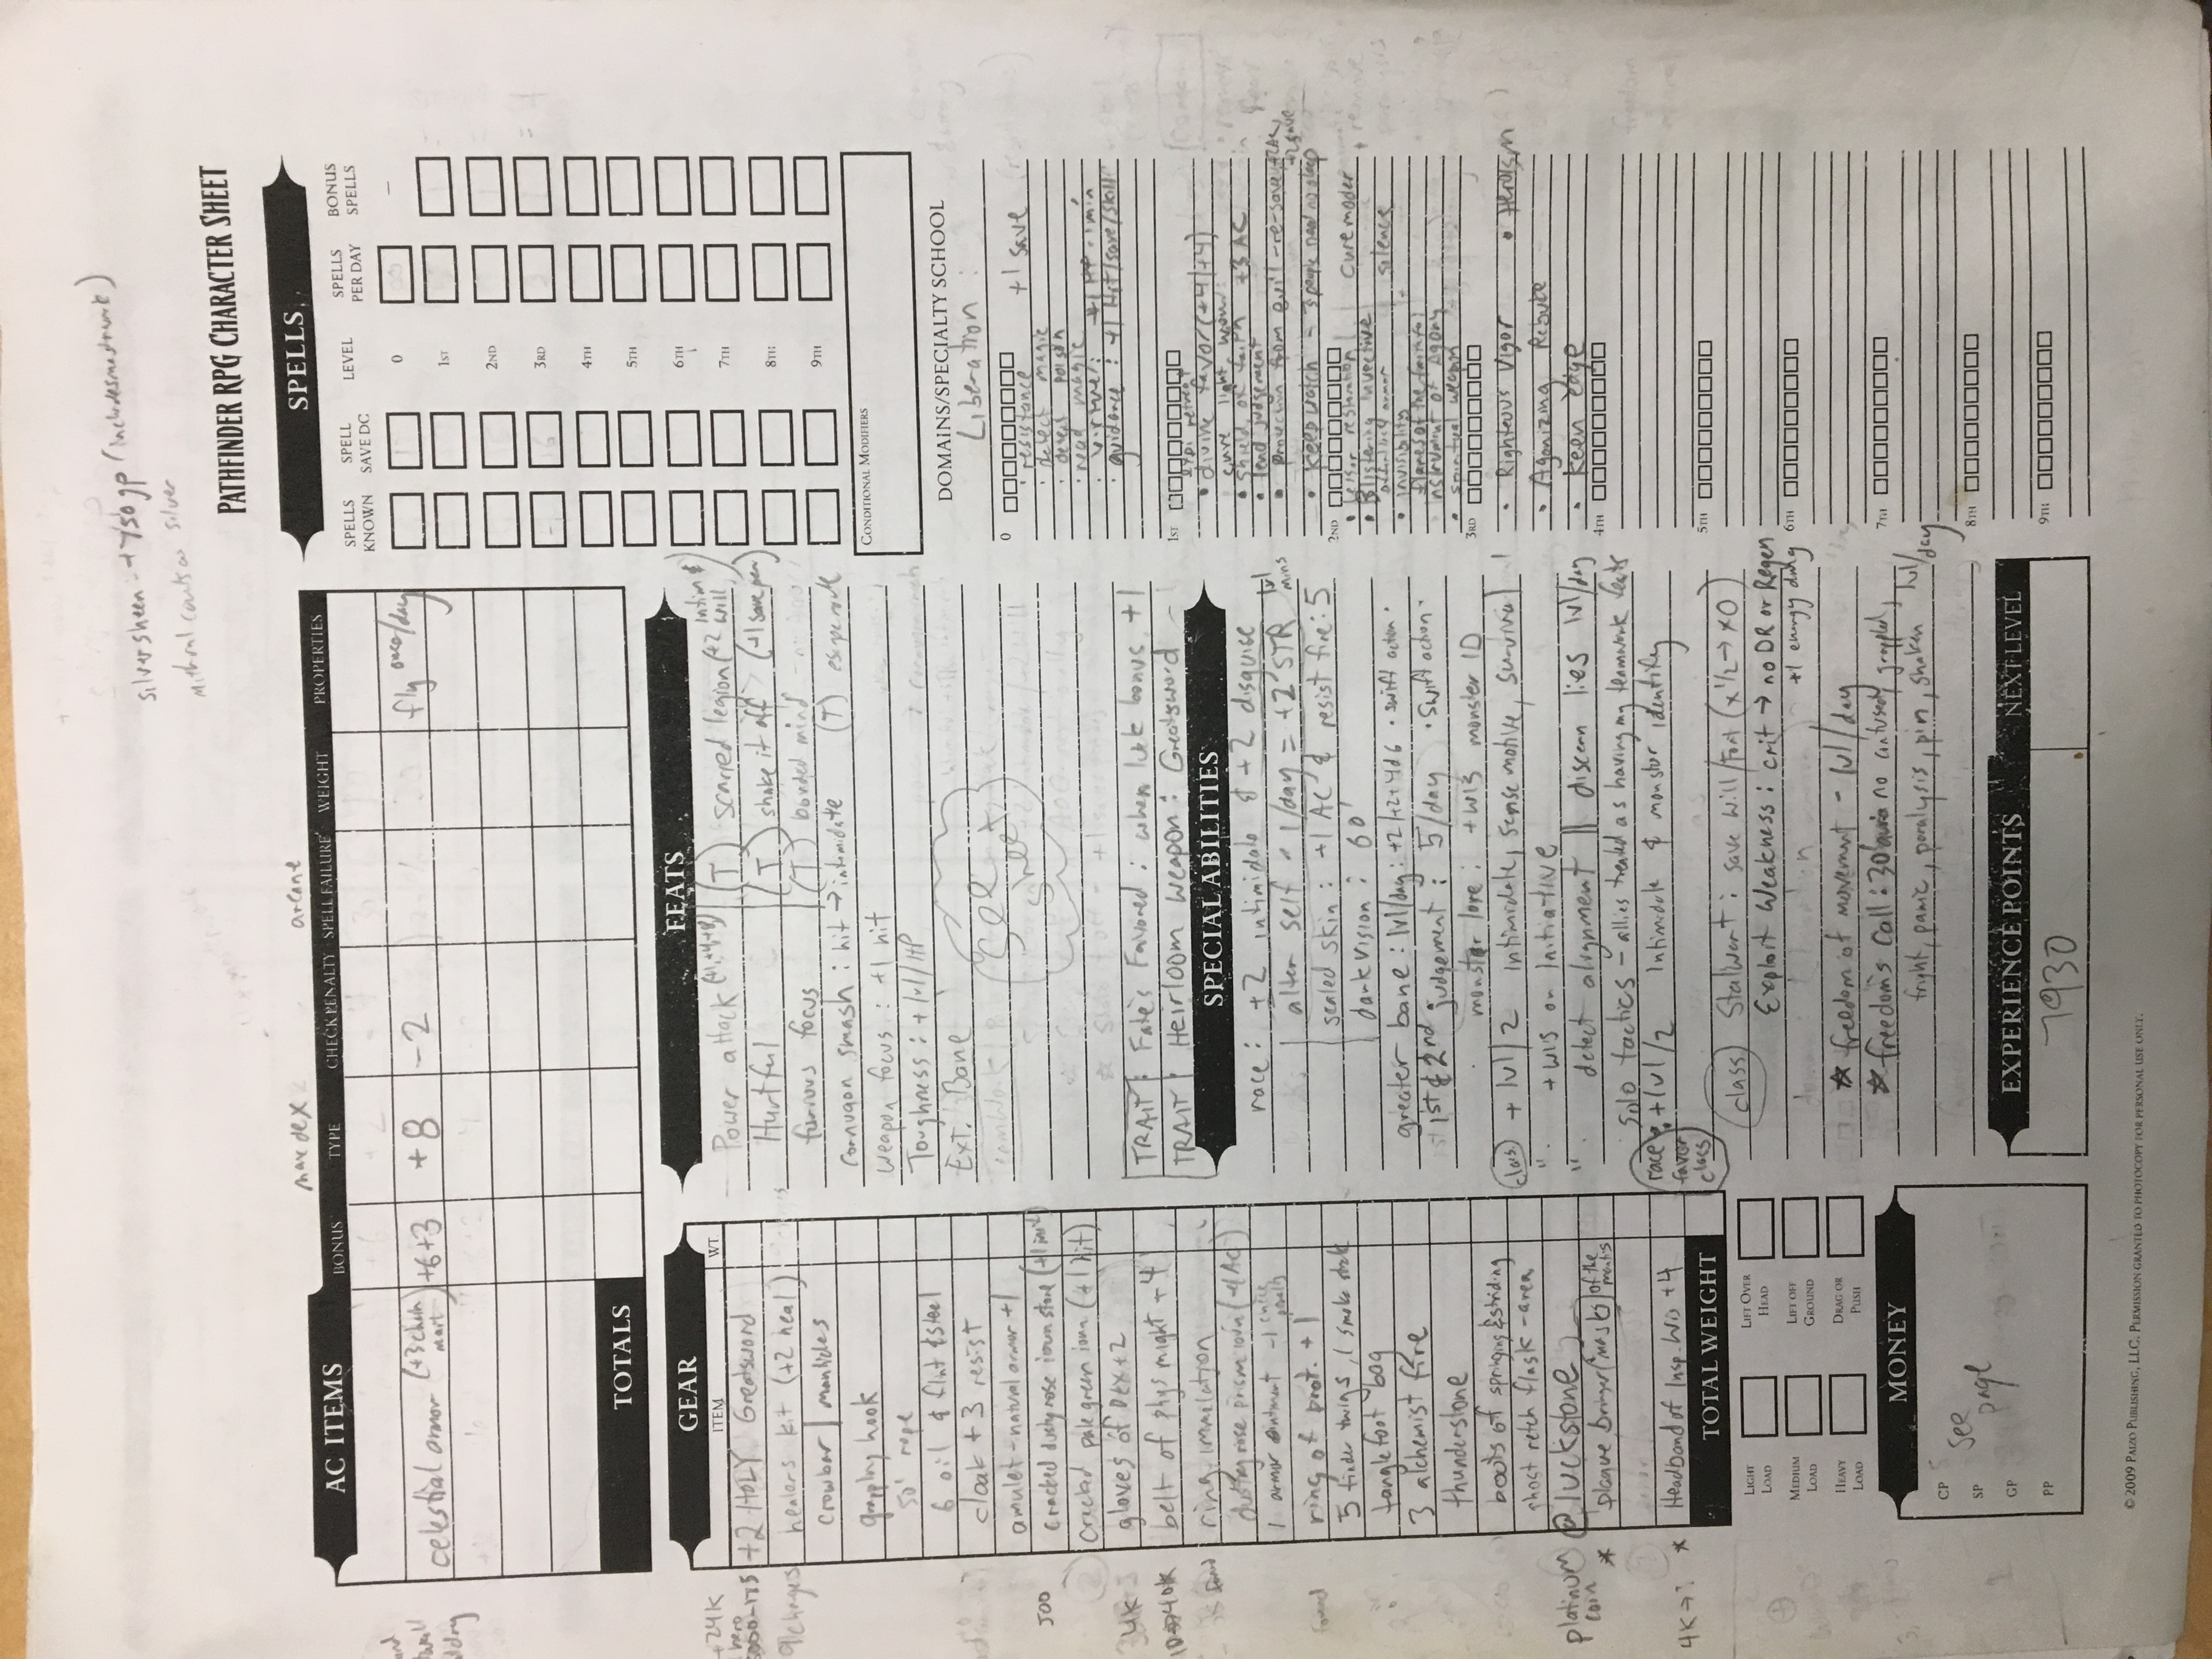 silver sheen : +750 gp (includes mastrwork)
mithral counts as silver
PATHFINDER RPG CHARACTER SHEET
max dex
arcane
AC ITEMS BONUS TYPE CHECK PENALTY SPELL FAILURE WEIGHT PROPERTIES
celestial armor (+3 chain mail) +6+3 +8 -2 fly once/day
TOTALS
GEAR
ITEM WT.
+24K
+2 HOLY Greatsword
healers kit (+2 heal)
crowbar | manticles
grappling hook
50' rope
6 oil & flint & steel
cloak +3 resist
amulet - natural armor +1
500
cracked dusty rose ioun stone (+1 init)
cracked pale green ioun (+1 hit)
gloves of Dex +2
4K
belt of phys might +4
ring
found
dusty rose prism ioun (+1 AC)
1 armor ointment -1 check penalty
found
ring of prot. +1
5 tinder twigs, 1 smoke stick
tanglefoot bag
3 alchemist fire
thunderstone
boots of springing & striding
ghost retch flask - area
platinum coin
@ luckstone
* plague bringer (mask) of the mantis
4K→? * Headband of Insp. Wis +4
TOTAL WEIGHT
LIGHT LOAD LIFT OVER HEAD
MEDIUM LOAD LIFT OFF GROUND
HEAVY LOAD DRAG OR PUSH
MONEY
CP
SP
GP
PP
see page
FEATS
Power attack (T) scarred legion (+2 Intim & will)
Hurtful (T) shake it off (+1 save per)
furious focus (T) bonded mind
cornugon smash : hit → intimidate (T) escape route
weapon focus : +1 hit
Toughness : + lvl/HP
Ext. Bane
See sheet
TRAIT : Fate's Favored : when luck bonus +1
TRAIT : Heirloom weapon : Greatsword
SPECIAL ABILITIES
race : +2 intimidate & +2 disguise
alter self - 1/day = +2 STR lvl mins
scaled skin : +1 AC & resist fire : 5
darkvision : 60'
greater bane : lvl/day : +2/+2+4d6 · swift action ·
1st & 2nd judgement : 5/day · swift action ·
monster lore : +wis monster ID
(class) + lvl/2 Intimidate, sense motive, survival
" +WIS on Initiative
" detect alignment || discern lies lvl/day
solo tactics - allies treated as having my teamwork feats
race favor class : +lvl/2 Intimidate & monster identify
(class) Stalwart : save will/fort (x 1/2 → x0)
Exploit Weakness : crit → no DR or Regen
+1 energy dmg
☆ freedom of movement - lvl/day
☆ freedom's Call : 30' aura no confused, grappled,
fright, panic, paralysis, pin, shaken lvl/day
EXPERIENCE POINTS NEXT LEVEL
7930
SPELLS
SPELLS KNOWN SPELL SAVE DC LEVEL SPELLS PER DAY BONUS SPELLS
0 —
1ST
2ND
3RD
4TH
5TH
6TH
7TH
8TH
9TH
CONDITIONAL MODIFIERS
DOMAINS/SPECIALTY SCHOOL
Liberation :
0
· resistance +1 save
· detect magic
· detect poison
· read magic
· virtue : +1 HP · 1 min
· guidance : +1 Hit/save/skill
1ST
expi retreat
· divine favor (+4/+4)
cure light wound
· shield of faith +3 AC
· lend judgement
· protection from evil - re-save, +2AC, +2 save
· keep watch - 3 people need no sleep
2ND
· lesser restoration cure moder
· Blistering Invective
silence
· invisibility
flames of the faithful
instrument of Agony
· spiritual weapon
3RD
· Righteous Vigor · Heroism
· Agonizing Rebuke
· keen edge
4TH
5TH
6TH
7TH
8TH
9TH
© 2009 PAIZO PUBLISHING, LLC. PERMISSION GRANTED TO PHOTOCOPY FOR PERSONAL USE ONLY.